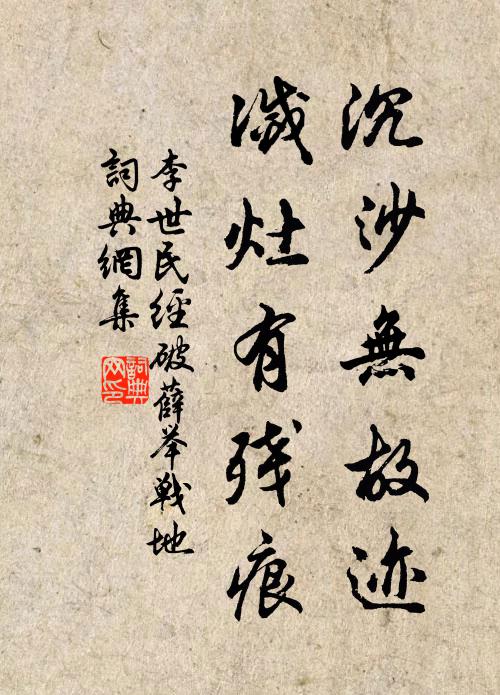 沉沙無故迹
滅灶有残痕
李世民經破薛举戰地
詞典網集
詞典
网印